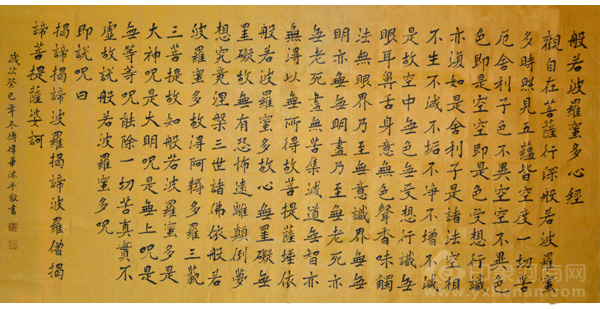 般若波羅蜜多心經
觀自在菩薩行深般若波羅蜜
多時照見五蘊皆空度一切苦
厄舍利子色不異空空不異色
色即是空空即是色受想行識
亦復如是舍利子是諸法空相
不生不滅不垢不淨不增不減
是故空中無色無受想行識無
眼耳鼻舌身意無色聲香味觸
法無眼界乃至無意識界無無
明亦無無明盡乃至無老死亦
無老死盡無苦集滅道無智亦
無得以無所得故菩提薩埵依
般若波羅蜜多故心無罣礙無
罣礙故無有恐怖遠離顛倒夢
想究竟涅槃三世諸佛依般若
波羅蜜多故得阿耨多羅三藐
三菩提故知般若波羅蜜多是
大神呪是大明呪是無上呪是
無等等呪能除一切苦真實不
虛故說般若波羅蜜多呪
即說呪曰
揭諦揭諦波羅揭諦波羅僧揭
諦菩提薩婆訶
歲次癸巳年冬華沐手敬書
印象河南网
www.yxhenan.com